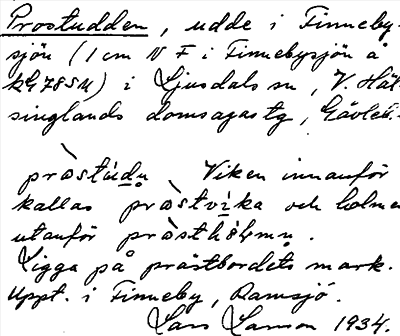 Prostudden, udde i Finneby-
sjön (1 cm N F i Finnebysjön å
kG78SU) i Ljusdals sn, V. Häl-
singlands domsagas tg, Gävleb.
pròstúdn Viken innanför
kallas pròstvíka och holmen
utanför pròsthólmn.
Ligga på prästbordets mark.
Uppt. i Finneby, Ramsjö.
Lars Larsson 1934.